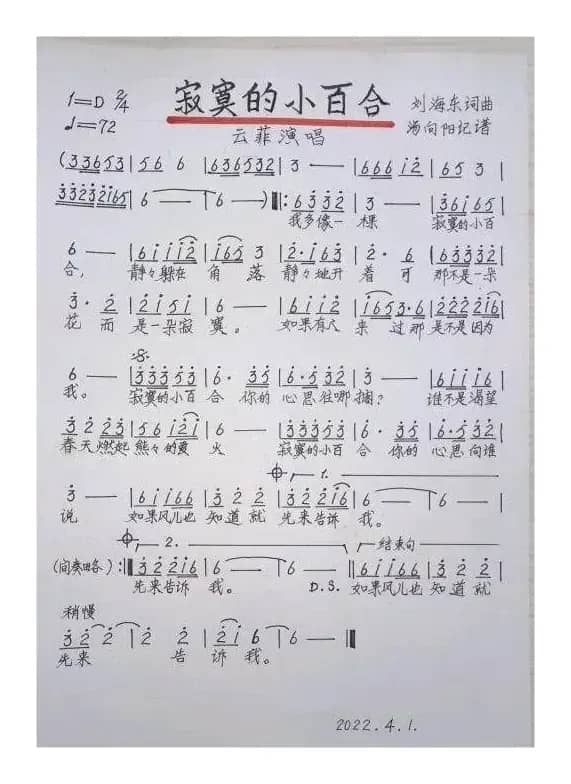 1=D 2/4 寂寞的小百合 刘海东词曲
♩=72 云菲演唱 汤向阳记谱
(336553 | 56 6 | 636532 | 3 — | 666 i2 | 65 3 |
33232165 | 6 — | 6 — ) ‖: 6332 | 3 — | 36165 |
我多像一 棵 寂寞的小百
6 — | 61112 | 165 3 | 2·163 | 2· 6 | 63332 |
合, 静々躲在 角落 静々地开 着可 那不是一朵
3· 2 | 2151 | 6 — | 6112 | 1653·6 | 2222216 |
花而 是一朵寂 寞。 如果有人 来过那 是不是因为
6 — | 333353 | 6· 3 | 6·532 | 3 2 | 61116 |
我。 寂寞的小百 合你的 心思往哪搁? 谁不是渴望
3 2 2223 | 55121 | 6 — | 333553 | 6· 3 | 6·533 |
春天燃起 熊々的爱 火 寂寞的小百 合你的 心思向谁
1.
3 — | 61166 | 3 2 2 | 32216 | 6 — | 6 — |
说 如果风儿也 知道就 先来告诉 我。
2. 结束句
(间奏略) :‖ 32216 | 6 — | 6 — D.S. ‖ 61166 | 3 2 2 |
先来告诉 我。 如果风儿也 知道就
稍慢
3 2 2 | 2 2 | 2 1 6 | 6 — ‖
先来 告 诉我。
2022.4.1.